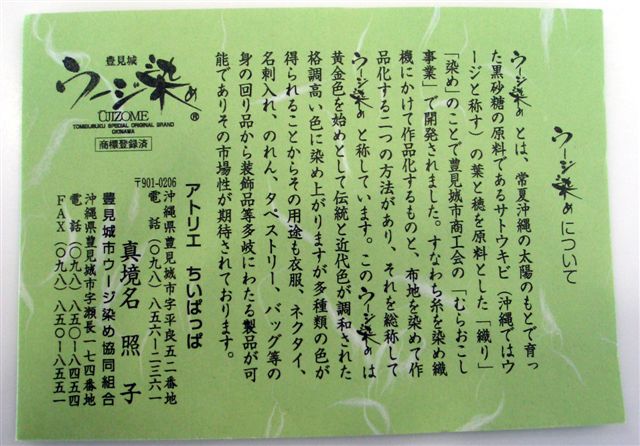 ウージ染めについて
ウージ染めとは、常夏沖縄の太陽のもとで育っ
た黒砂糖の原料であるサトウキビ（沖縄ではウ
ージと称す）の葉と穂を原料とした「織り」
「染め」のことで豊見城市商工会の「むらおこし
事業」で開発されました。すなわち糸を染め織
機にかけて作品化するものと、布地を染めて作
品化する二つの方法があり、それを総称して
ウージ染めと称しています。このウージ染めは
黄金色を始めとして伝統と近代色が調和された
格調高い色に染め上がりますが多種類の色が
得られることからその用途も衣服、ネクタイ、
名刺入れ、のれん、タペストリー、バッグ等の
身の回り品から装飾品等多岐にわたる製品が可
能でありその市場性が期待されております。
豊見城
ウージ染め®
UJIZOME
TOMIGUSUKU SPECIAL ORIGINAL BRAND
OKINAWA
商標登録済
アトリエ ちいぱっぱ
真境名 照子
〒901-0206
沖縄県豊見城市字平良五二番地
電話（〇九八）八五六－二三六一
豊見城市ウージ染め協同組合
沖縄県豊見城市字瀬長一七四番地
電話（〇九八）八五〇－八四五四
ＦＡＸ（〇九八）八五〇－八五五一